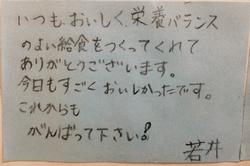 いつも、おいしく、栄養バランス
のよい給食をつくってくれて
ありがとうございます。
今日もすごくおいしかったです。
これからも
がんばって下さい!
若井